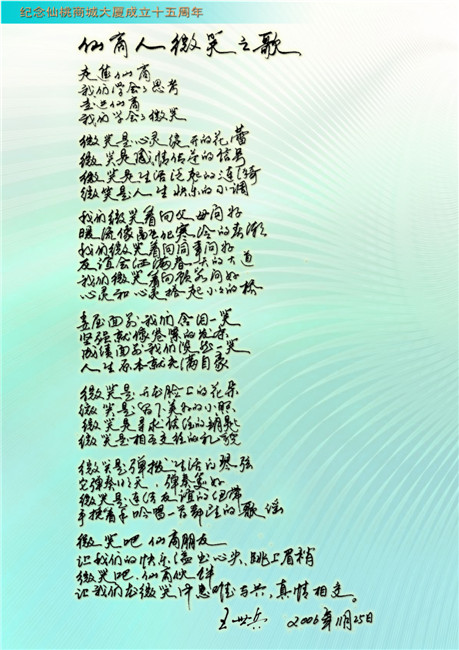 纪念仙桃商城大厦成立十五周年
仙商人微笑之歌
走进仙商
我们学会了思考
走进仙商
我们学会了微笑
微笑是心灵绽开的花蕾
微笑是感情传递的信号
微笑是生活泛起的涟漪
微笑是人生快乐的小调
我们微笑着向父母问好
暖流像融化寒冷的春潮
我们微笑着向同事问好
友谊会洒满春天的大道
我们微笑着向顾客问好
心灵和心灵搭起小小的桥
委屈面前我们含泪一笑
坚强就像
成绩面前我们淡然一笑
人生原本就充满自豪
微笑是开在脸上的花朵
微笑是留下美和的小照
微笑是寻求快活的钥匙
微笑是相互支柱的礼貌
微笑是弹拨生活的琴弦
它弹奏明天,弹奏美好
微笑是连结友谊的纽带
手挽着手吟唱一首群注的歌谣
微笑吧,仙商朋友
让我们的快乐溢出心尖、跳上眉梢
微笑吧,仙商伙伴
让我们在微笑中思唯与共,真情相交。
王世兵 2006年11月25日